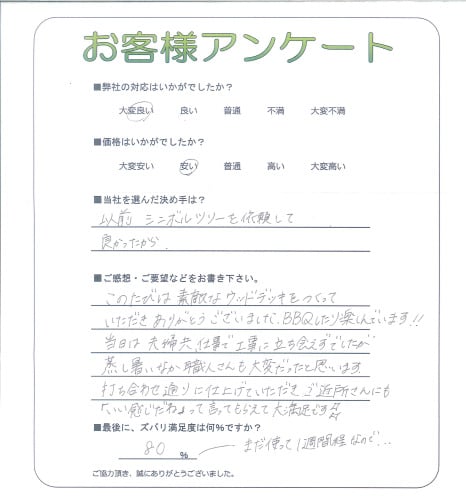 お客様アンケート
■弊社の対応はいかがでしたか？
大変良い 良い 普通 不満 大変不満
■価格はいかがでしたか？
大変安い 安い 普通 高い 大変高い
■当社を選んだ決め手は？
以前 シンボルツリーを依頼して
良かったから
■ご感想・ご要望などをお書き下さい。
このたびは素敵なウッドデッキをつくって
いただきありがとうございました。BBQしたり楽しんでいます!!
当日は夫婦共仕事で工事に立ち会えずでしたが
蒸し暑いなか職人さんも大変だったと思います
打ち合わせ通りに仕上げていただきご近所さんにも
「いい感じだね」って言ってもらえて大満足です
■最後に、ズバリ満足度は何%ですか？
80 % まだ使って1週間程なので...
ご協力頂き、誠にありがとうございました。